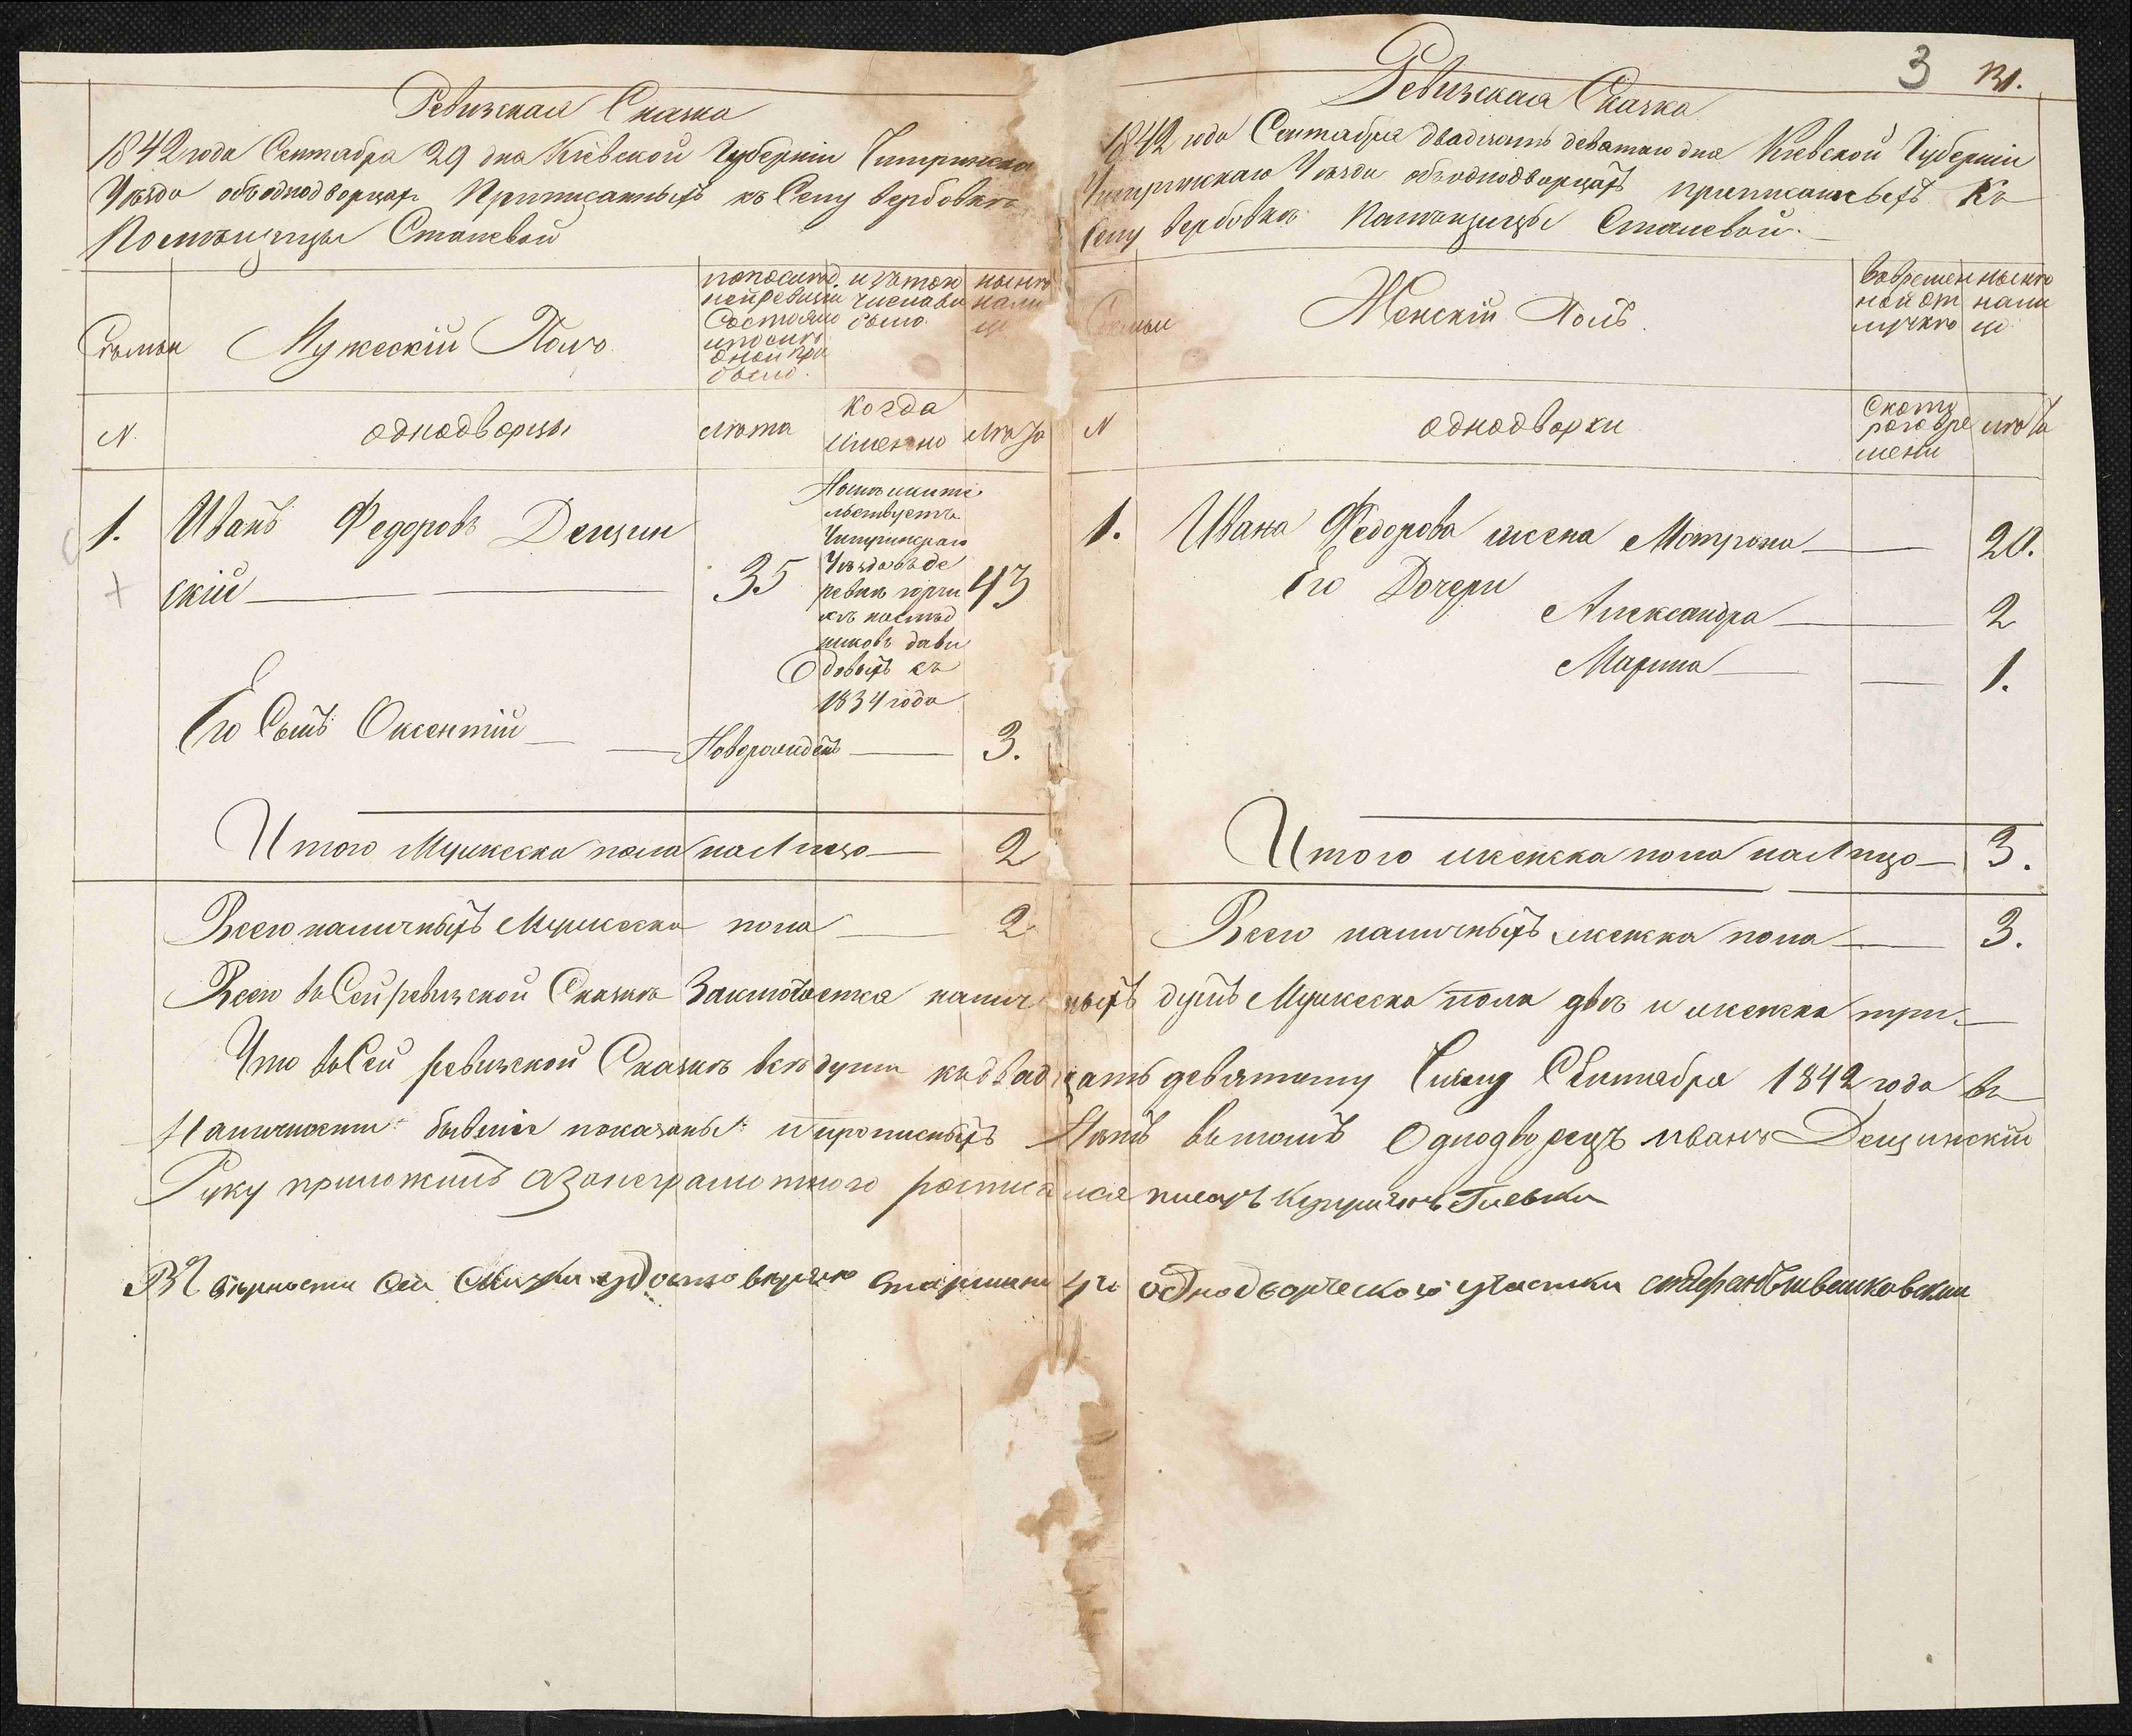 Ревизская Сказка
1842 года Сентабра 29 дна Кіевской Губерніи
Уѣзда объ однодворцах Приписанныхъ къ Селу Вербовкѣ
Помѣщицы
Семьи
Мужескій Полъ
по послед.
ней ревизіи
состояло
и после
оной при
было.
изъ того
числа вы
было.
нынѣ
нали
цо
N.
однодворцы
лѣта
Когда
именно
лѣта
1. Иванъ Федоровъ Дещин
скій 35 43
Нынѣ жити
льствуетъ
Чигиринскаго
Уѣзда въ де
ревнѣ
наслѣд
никовъ Дави
довыхъ съ
1834 года
Его Сынъ Оксентій Новорожденъ 3.
Итого Мужеска пола на Лицо 2
Всего наличныхъ Мужеска пола 2
3
Ревизская Сказка
1842 года Сентабра двадцать деватаго дна Кіевской Губерніи
Чигиринскаго Уѣзда объ однодворцахъ приписанныхъ Къ
Селу Вербовкѣ Помѣщицы
Семьи
Женскій Полъ.
во времен
ной от
лучкѣ
нынѣ
нали
цо
N
однодворки
Ското
раго вре
мени
лѣта
1. Ивана Федорова жена Матрона 20.
Его Дочери
Александра 2
Марина 1.
Итого женска пола на Лицо 3.
Всего наличныхъ женска пола 3.
Всего въ Сей ревизской Сказкѣ Заключаетса наличныхъ душъ Мужеска пола двѣ и женска три.
Что въ Сей ревизской Сказкѣ всѣ души къ двадцать девятому Числу Сентабра 1842 года въ
Наличности бывшіе показаны и прописныхъ Нѣтъ въ томъ Однодворецъ Иванъ Дещинскій
Руку приложилъ а за неграмотного росписался писарь
Въ вѣрности сей Сказки удостовѣряю Старшина однодворческого участка